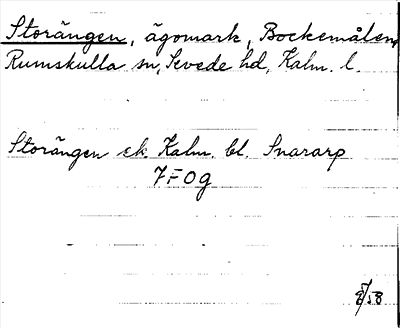 Storängen, ägomark, Bockemålen,
Rumskulla sn, Sevede hd, Kalm. l.
Storängen ek. Kalm. bl. Snararp
7F0g